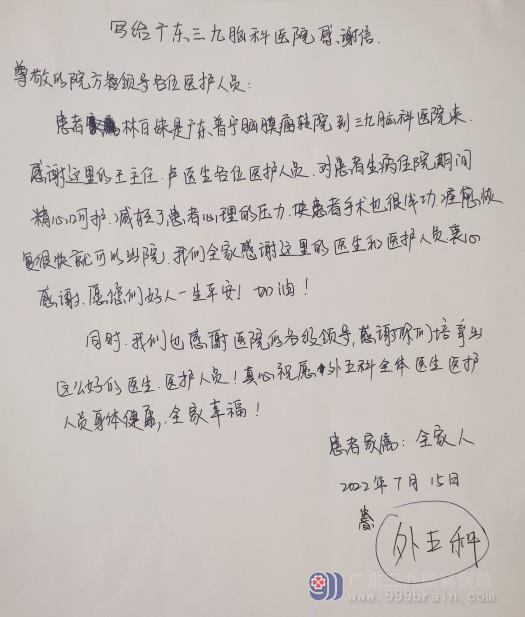 写给广东三九脑科医院感谢信.
尊敬的院方各领导各位医护人员:
患者林百妹是广东普宁脑膜瘤转院到三九脑科医院来.
感谢这里的王主任.卢医生各位医护人员.对患者生病住院期间
精心呵护.减轻了患者心理的压力.使患者手术也很成功.痊愈恢
复很快就可以出院.我们全家感谢这里的医生和医护人员.衷心
感谢.愿您们好人一生平安!加油!
同时.我们也感谢医院的各级领导,感谢你们培育出
这么好的医生.医护人员!真心祝愿外五科全体医生医护
人员身体健康,全家幸福!
患者家属:全家人
2022年7月15日
外五科
广东三九脑科医院
www.999brain.com